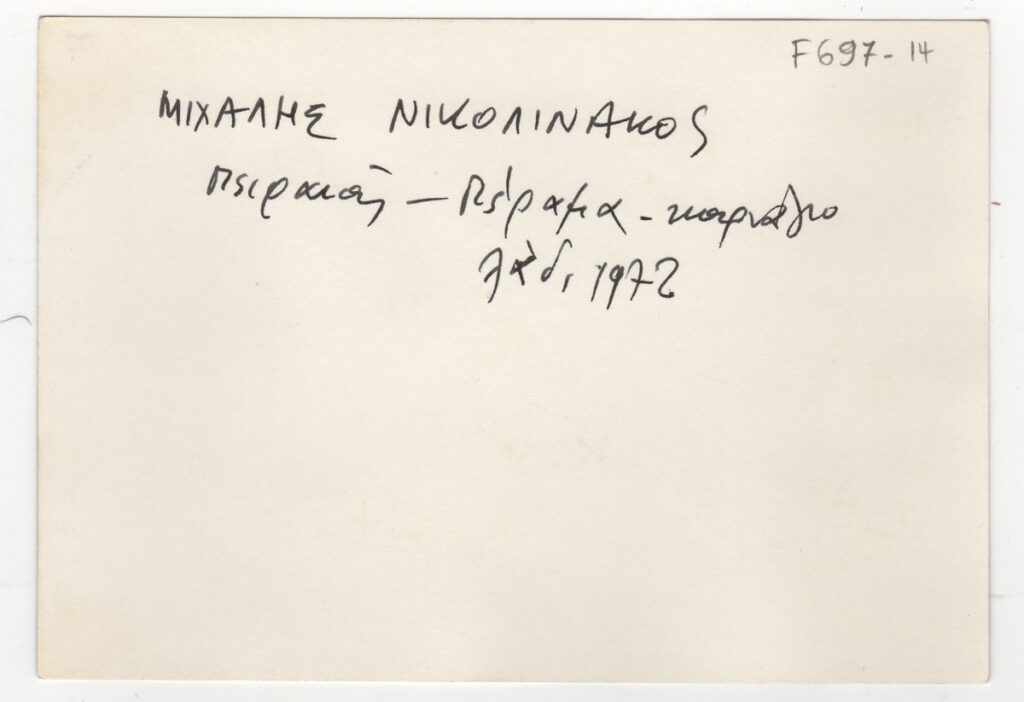 F697-14
ΜΙΧΑΛΗΣ ΝΙΚΟΛΙΝΑΚΟΣ
Πειραιάς – Πέραμα - καρνάγιο
λάδι, 1972